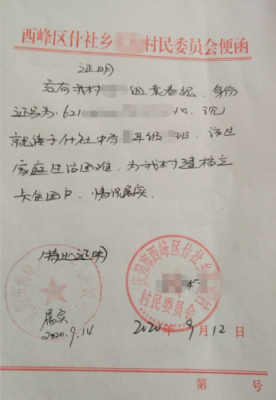 西峰区什社乡 村民委员会便函
证明
兹有我村 组 ，身份
证号为:621 ，现
就读于什社中学 年级 班，该生
家庭生活困难，为我村建档立
卡贫困户，情况属实。
特此证明
庆阳市西峰区什社乡
村民委员会
属实
2020.9.14
2020年9月12日
第 号